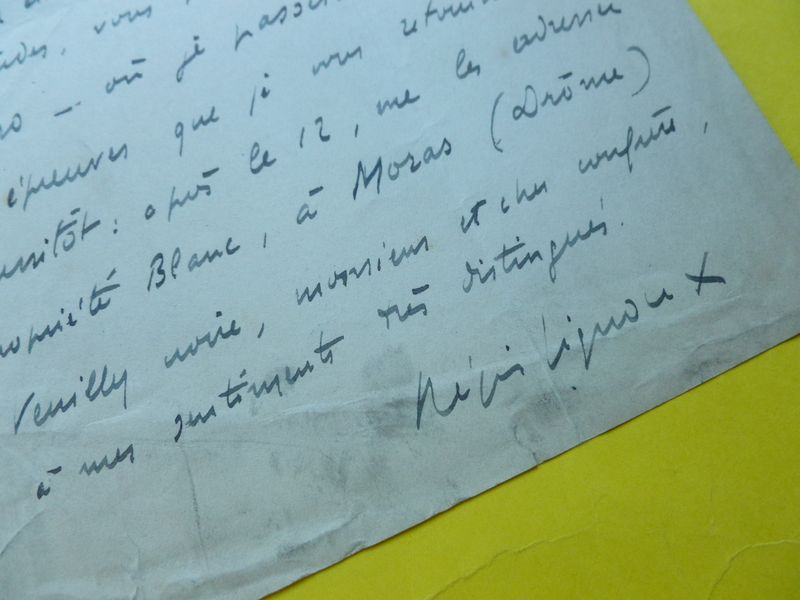 vous
– où je passe
épreuves que je vous retourn
ussitôt : après le 12, me les adresser
ropriété Blanc, à Moras (Drôme)
Veuillez croire, monsieur et cher confrère,
à mes sentiments très distingués.
Régis Gignoux